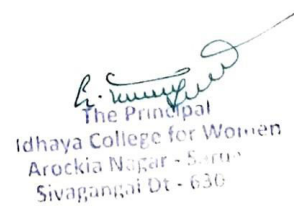 The Principal
Idhaya College for Women
Arockia Nagar -
Sivagangai Dt - 630